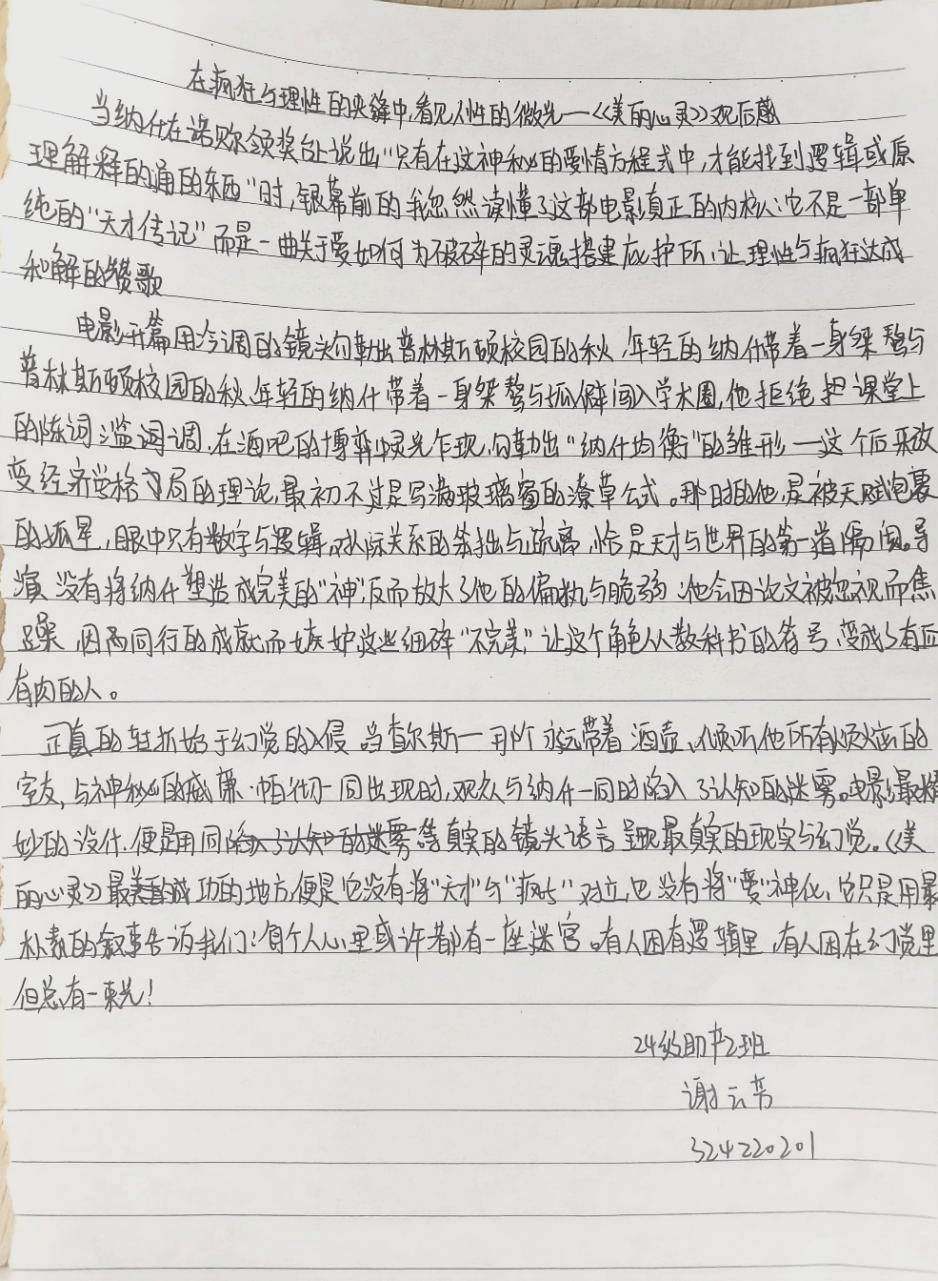 在疯狂与理性的夹缝中,看见人性的微光—《美丽心灵》观后感
当纳什在诺贝尔颁奖台说出“只有在这神秘的爱情方程式中,才能找到逻辑或原
理解释的通的东西”时,银幕前的我忽然读懂了这部电影真正的内核:它不是一部单
纯的“天才传记”而是一曲关于爱如何为破碎的灵魂搭建庇护所,让理性与疯狂达成
和解的赞歌
电影开篇用冷调的镜头勾勒出普林斯顿校园的秋,年轻的纳什带着一身桀骜与
普林斯顿校园的秋,年轻的纳什带着一身桀骜与孤僻闯入学术圈,他拒绝把课堂上
的陈词滥调,在酒吧的博弈中灵光乍现,勾勒出“纳什均衡”的雏形—这个后来改
变经济学格局的理论,最初不过是写满玻璃窗的潦草公式。那时的他,是被天赋包裹
的孤星,眼中只有数字与逻辑,对人际关系的笨拙与疏离,恰是天才与世界的第一道隔阂。导
演没有将纳什塑造成完美的“神”,反而放大了他的偏执与脆弱:他会因论文被忽视而焦
躁,因为同行的成就而嫉妒,这些细碎“不完美”,让这个角色从教科书的符号,变成了有血
有肉的人。
正真的转折始于幻觉的入侵,当查尔斯一那个永远带着酒壶、倾听他所有烦恼的
室友,与神秘的威廉·帕彻一同出现时,观众与纳什一同陷入了认知的迷雾。电影最精
妙的设计,便是用同等真实的镜头语言呈现最真实的现实与幻觉。《美
丽心灵》最成功的地方,便是它没有将“天才”与“疯子”对立,也没有将“爱”神化,它只是用最
朴素的叙事告诉我们:每个人心里或许都有一座迷宫。有人困有逻辑里,有人困在幻觉里
但总有一束光!
24级助产2班
谢云
324220201